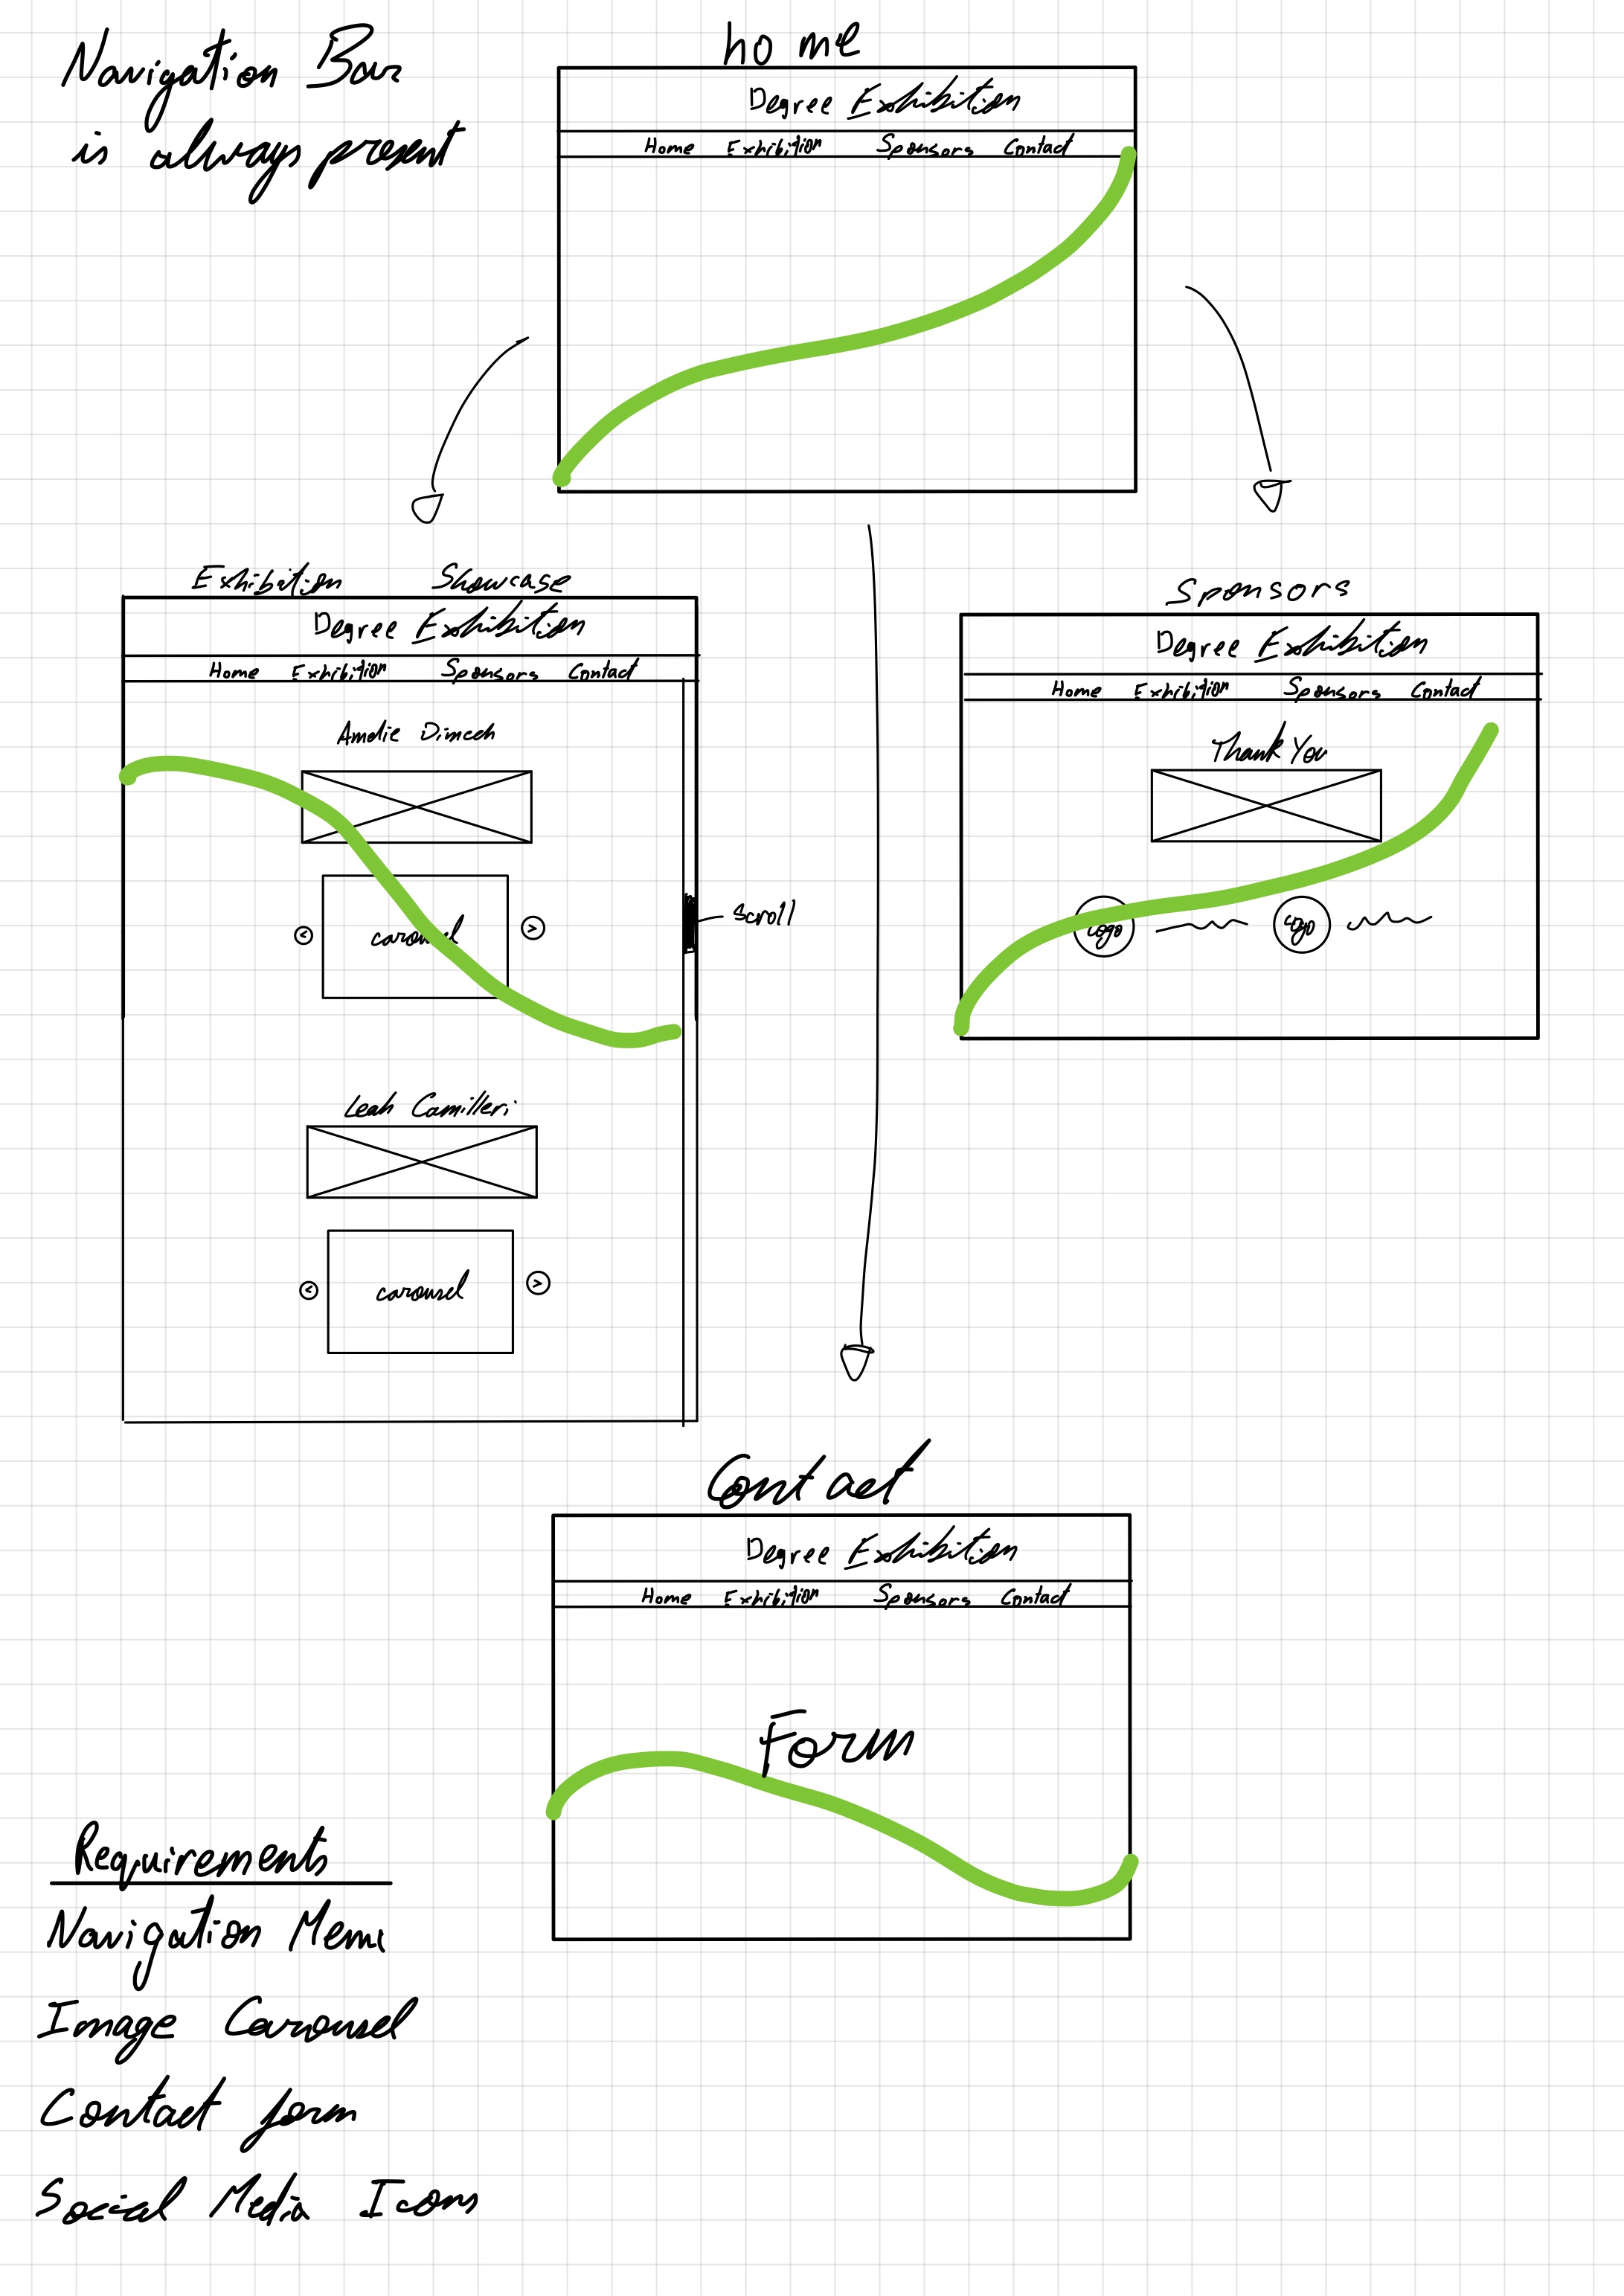 Navigation Bar
is always present
home
Degree Exhibition
Home Exhibition Sponsors Contact
Exhibation Showcase
Degree Exhibition
Home Exhibition Sponsors Contact
Amelie Dimech
carousel
<
>
Scroll
Leah Camilleri
carousel
<
>
Sponsors
Degree Exhibition
Home Exhibition Sponsors Contact
Thank You
Logo
Logo
Contact
Degree Exhibition
Home Exhibition Sponsors Contact
Form
Requirements
Navigation Menu
Image Carousel
Contact form
Social Media Icons